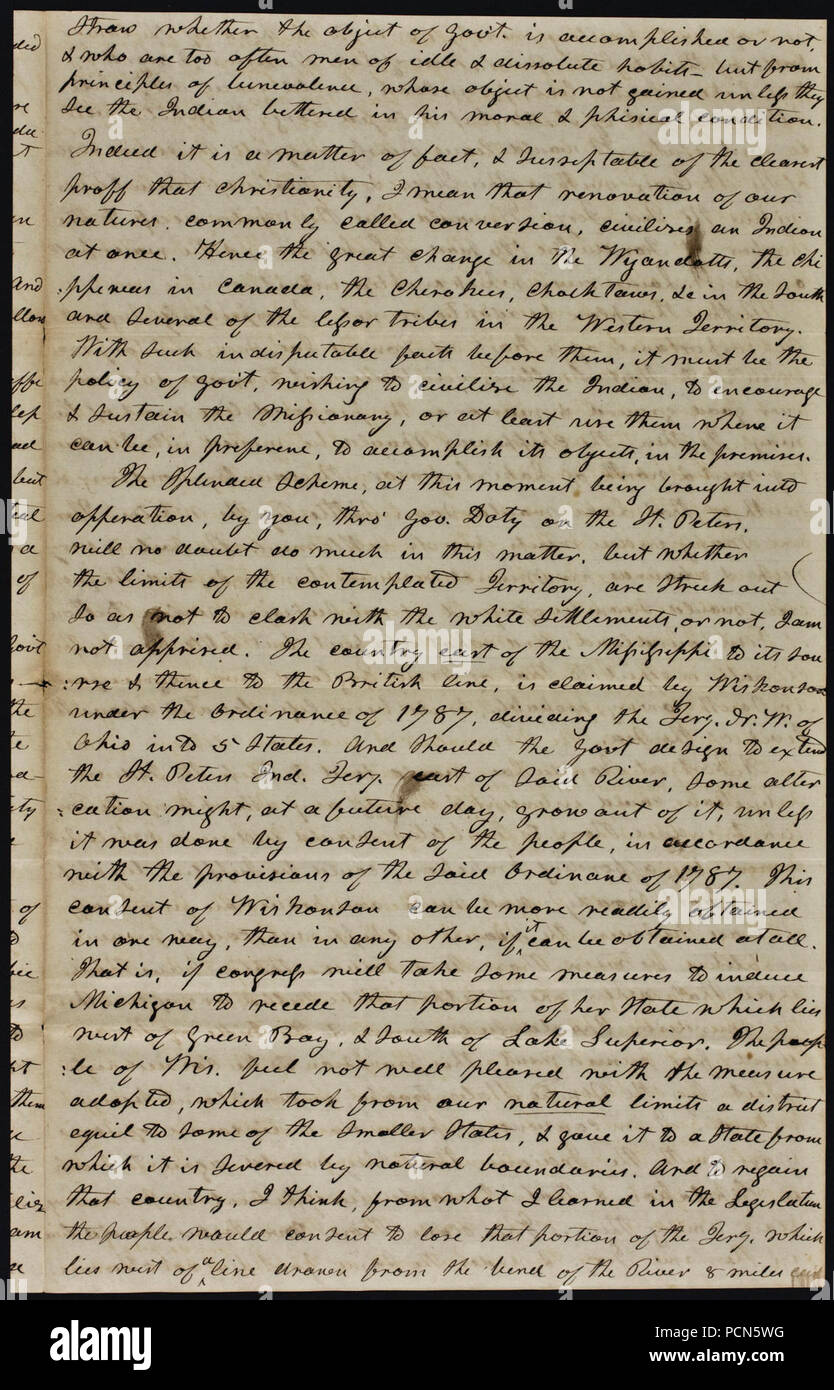 straw whether the object of Govt. is accomplished or not,
& who are too often men of idle & dissolute habits – but from
principles of benevolence, whose object is not gained unless they
see the Indian bettered in his moral & phisical condition.
Indeed it is a matter of fact, & susseptable of the clearest
proff that christianity, I mean that renovation of our
natures, commonly called conversion, civilizes an Indian
at once. Hence the great change in the Wyandotts, the Chi
:ppeways in Canada, the Cherokees, Chocktaws, &c in the South
and several of the lessor tribes in the Western Territory.
With such indisputable facts before them, it must be the
policy of Govt, wishing to civilize the Indian, to encourage
& sustain the Missionary, or at least use them where it
can be, in preferene, to accomplish its objects, in the premises.
The splended scheme, at this moment being brought into
opperation, by you, thro' Gov. Doty on the St. Peters,
will no doubt do much in this matter, but whether
the limits of the contemplated Territory, are struck out
so as not to clash with the white settlements, or not, I am
not apprised. The country east of the Mississippi to its sou
:rse & thence to the British line, is claimed by Wiskonson
under the Ordinance of 1787, dividing the Tery. N. W. of
Ohio into 5 States. And should the Govt design to extend
the St. Peters Ind. Tery. east of said River, some alter
:cation might, at a future day, grow out of it, unless
it was done by consent of the people, in accordance
with the provisions of the said Ordinane of 1787. This
consent of Wiskonson can be more readily obtained
in one way, than in any other, if it can be obtained at all.
That is, if congress will take some measures to induce
Michigan to recede that portion of her State which lies
west of Green Bay, & South of Lake Superior. The peop
:le of Wis. feel not well pleased with the measure
adopted, which took from our natural limits a district
equil to some of the smaller States, & gave it to a State from
which it is severed by natural boundaries. And to regain
that country, I think, from what I learned in the Legislature
the people would consent to lose that portion of the Tery. which
lies west of a line drawn from the bend of the River 8 miles
alamy
Image ID: PCN5WG
www.alamy.com